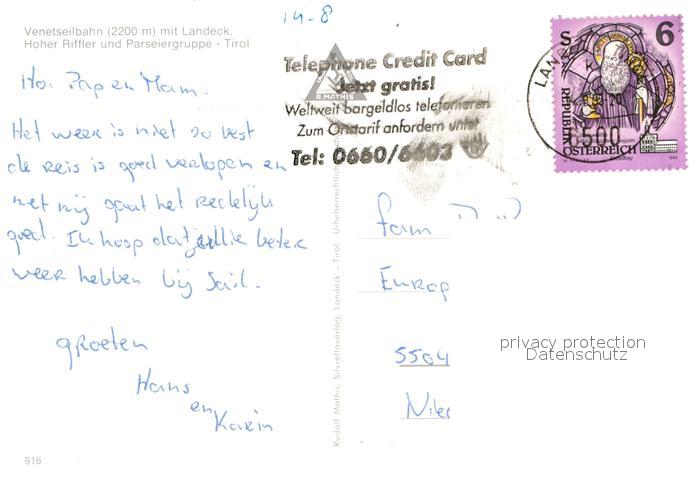 Venetseilbahn (2200 m) mit Landeck,
Hoher Riffler und Parseiergruppe - Tirol
14-8
Hoi Pap en Mam.
Het weer is niet zo best
de reis is goed verlopen en
met mij gaat het redelijk
goed. Ik hoop dat jullie beter
weer hebben bij Sail.
groeten
Hans
en
Karin
916
Rudolf Mathis, Silvrettaverlag, Landeck - Tirol.
R.MATHIS
Telephone Credit Card
Jetzt gratis!
Weltweit bargeldlos telefonieren
Zum Ortstarif anfordern unter
Tel: 0660/6803
6
REPUBLIK
ÖSTERREICH
6500
LAN
Fam
Europ
5504
privacy protection
Datenschutz